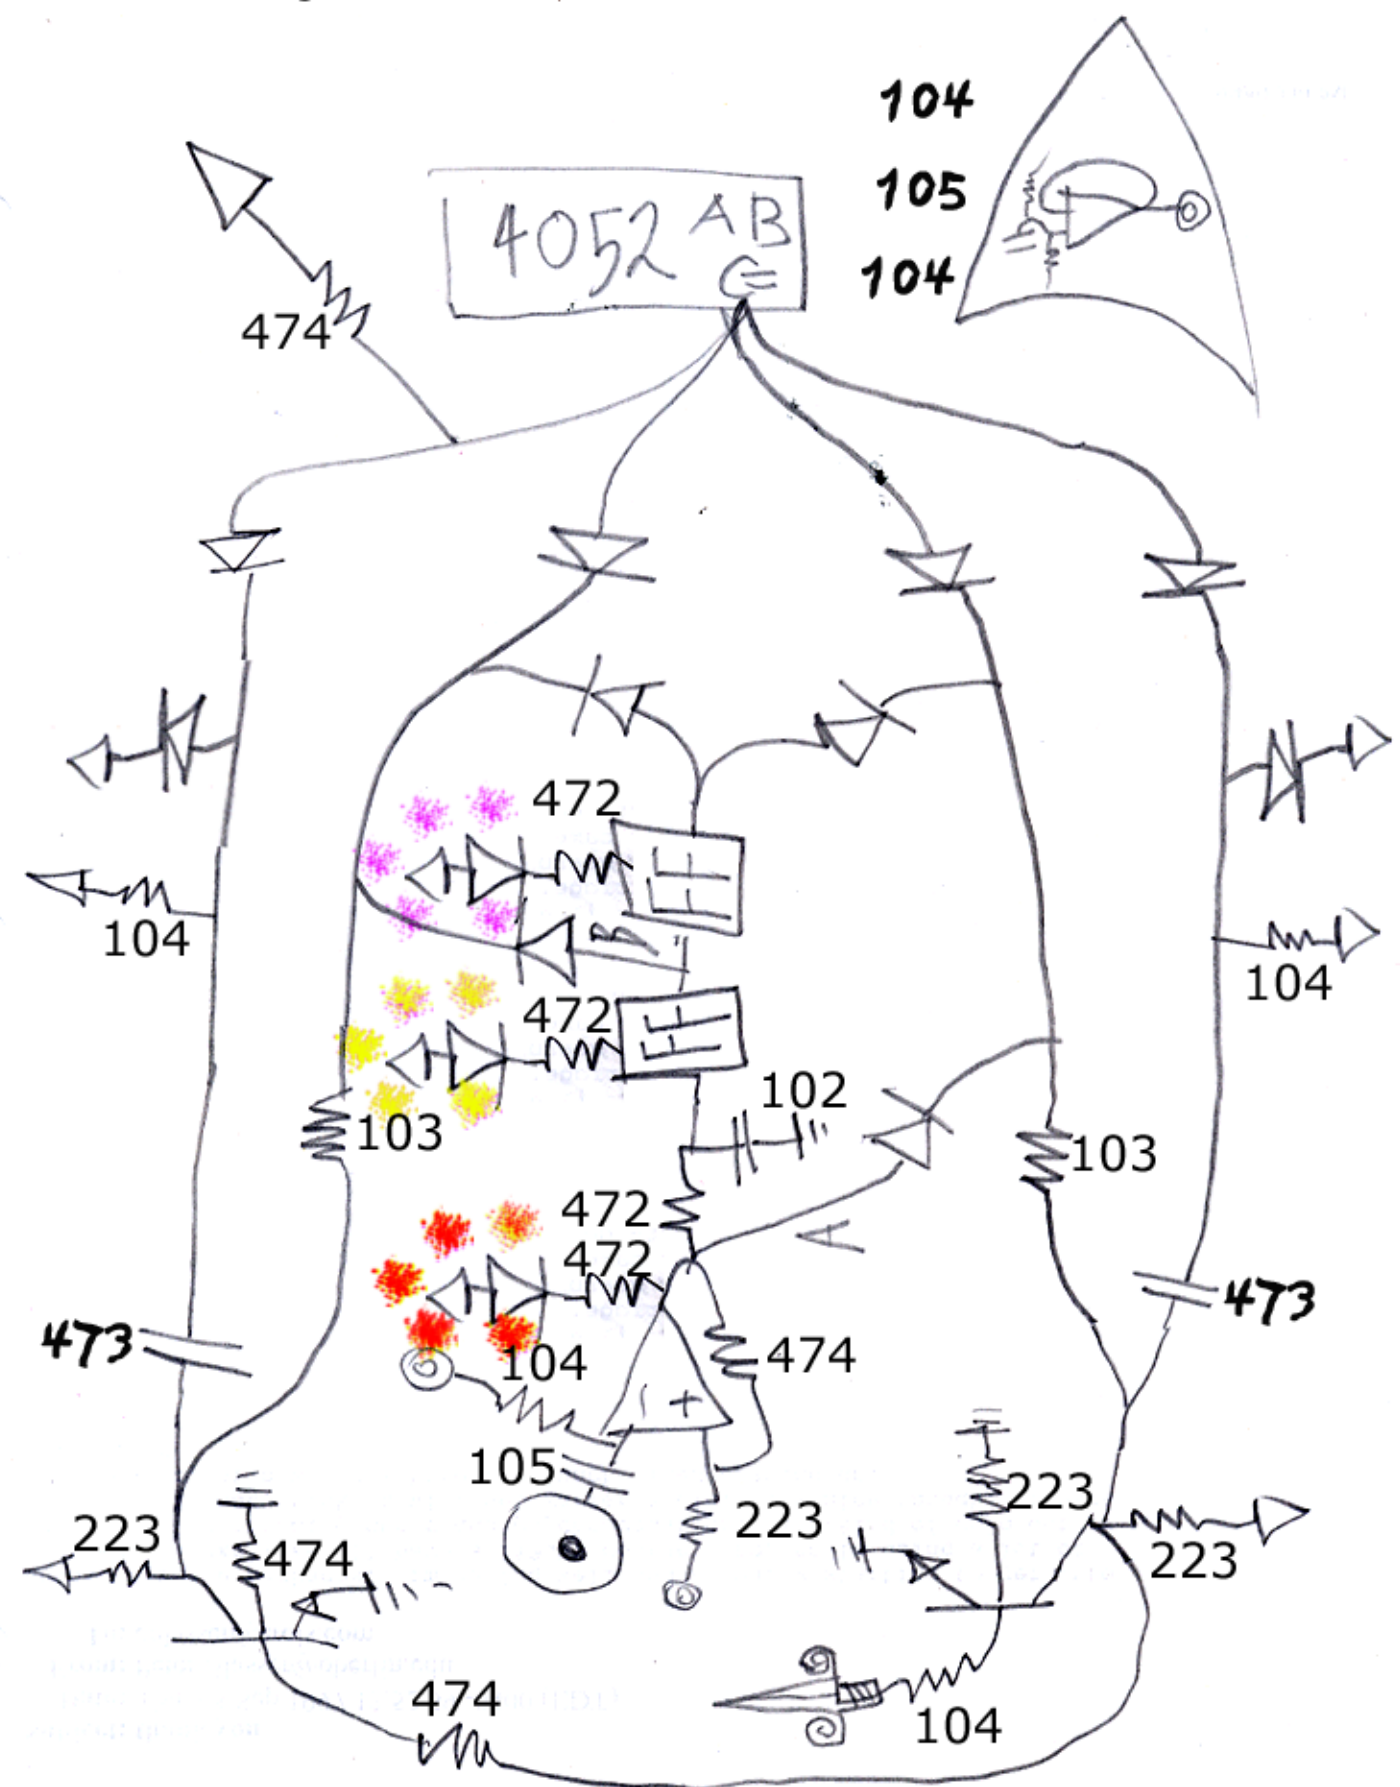 104
105
104
4052 AB
C=
474
472
104
104
B
472
102
103
103
472
A
472
473
473
104
474
- +
105
223
223
223
474
223
474
104